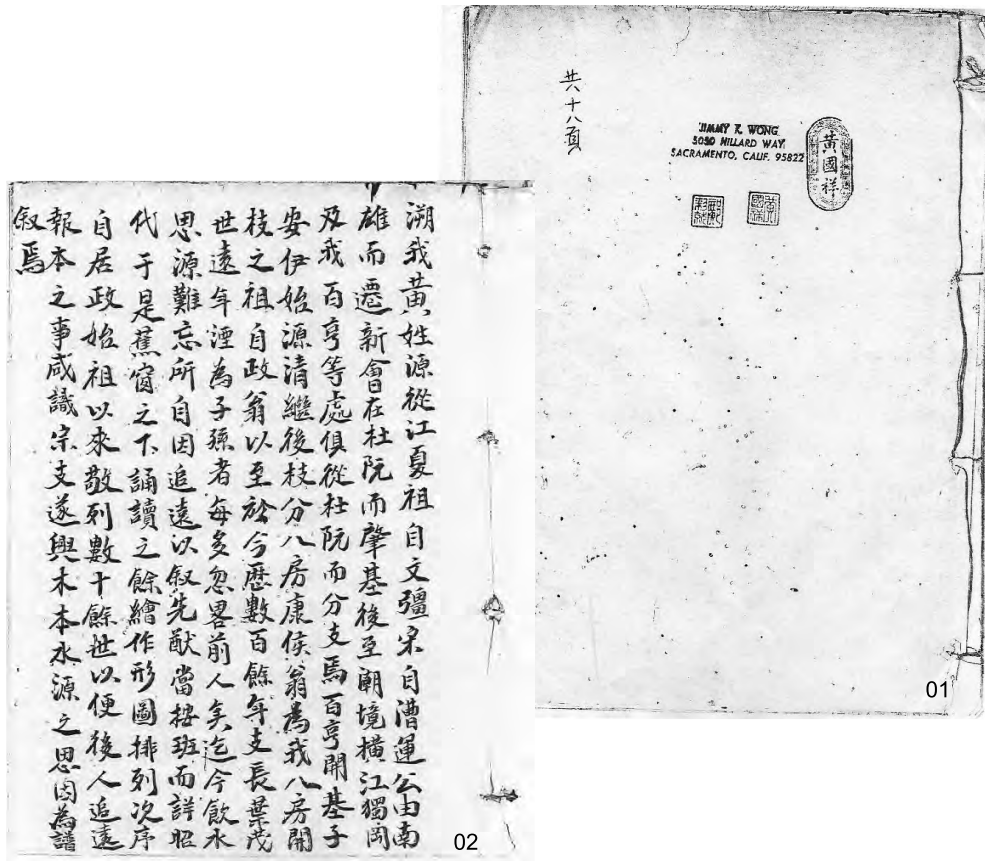 共十八頁
JIMMY K. WONG
5050 HILLARD WAY
SACRAMENTO, CALIF. 95822
黃國祥
01
溯我黃姓源從江夏祖自文彊宋自漕運公由南
雄而遷新會在杜阮而肇基後至廟境橫江獨岡
及我百亨等處俱從杜阮而分支焉百亨開基子
安伊始源清繼後枝分八房康侯翁為我八房開
枝之祖自政翁以至於今歷數百餘年支長葉茂
世遠年湮為子孫者每多忽畧前人矣迄今飲水
思源難忘所自因追遠以敘先猷當按班而詳昭
代于是蕉窗之下誦讀之餘繪作形圖排列次序
自居政始祖以來敬列數十餘世以便後人追遠
報本之事咸識宗支遂興木本水源之思因為譜
敘焉
02